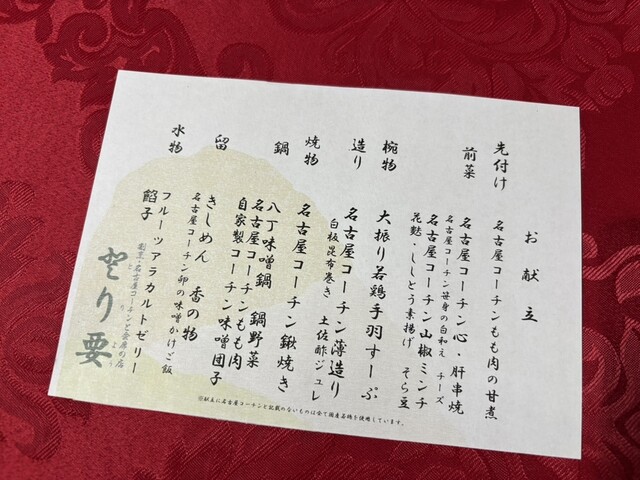 お献立
先付け
名古屋コーチンもも肉の甘煮
前菜
名古屋コーチン心・肝串焼
名古屋コーチン笹身の白和え チーズ
名古屋コーチン山椒ミンチ
花麩・ししとう素揚げ そら豆
椀物
大振り若鶏手羽すーぷ
造り
名古屋コーチン薄造り
白板昆布巻き 土佐酢ジュレ
焼物
名古屋コーチン鍬焼き
鍋
八丁味噌鍋 鍋野菜
名古屋コーチンもも肉
自家製コーチン味噌団子
留
きしめん 香の物
名古屋コーチン卵の味噌かけご飯
水物
フルーツアラカルトゼリー
餡子
名古屋コーチンと会席の店
とり要
※献立に名古屋コーチンと記載のないものは全て国産若鶏を使用しています。